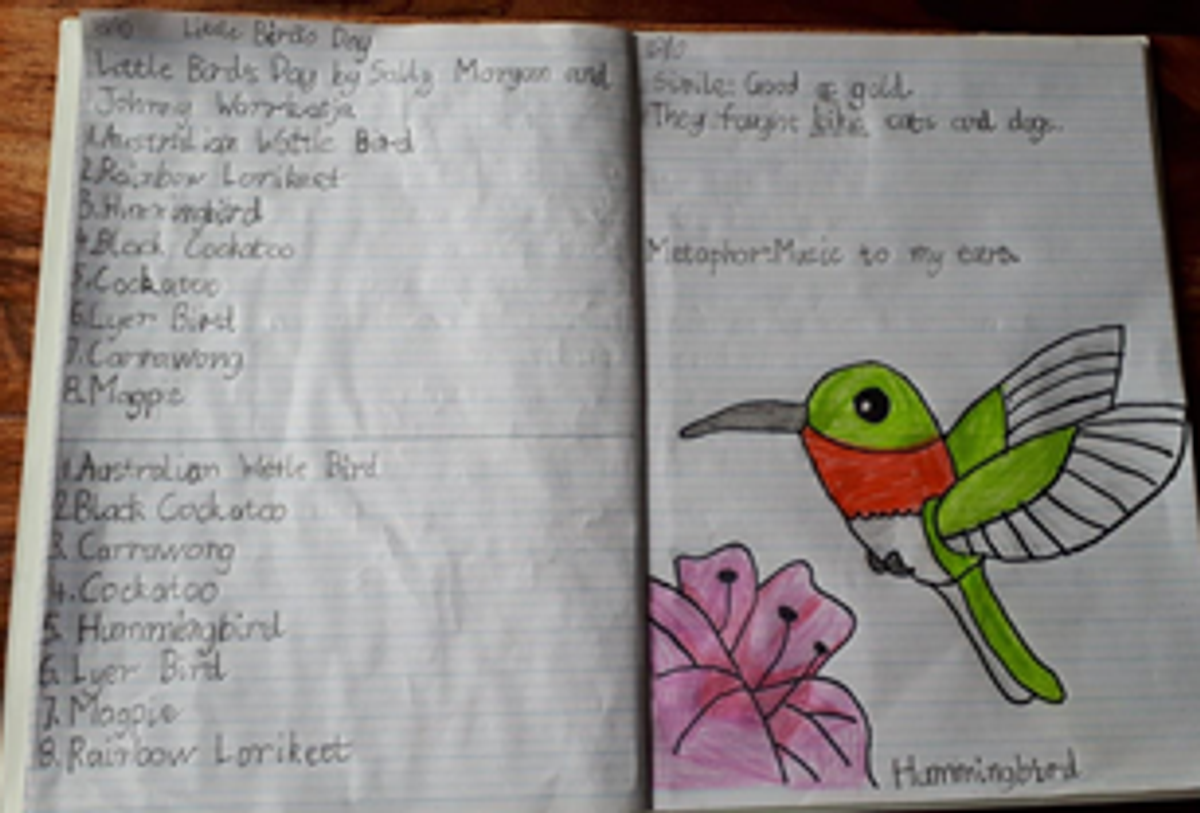 Little Birds Day
Little Birds Day by Sally Morgan and
Johnny Warrkatja
1.Australian Wattle Bird
2.Rainbow Lorikeet
3.Hummingbird
4.Black Cockatoo
5.Cockatoo
6.Lyer Bird
7.Carrawong
8.Magpie
1.Australian Wattle Bird
2.Black Cockatoo
3. Carrawong
4. Cockatoo
5. Hummingbird
6. Lyer Bird
7. Magpie
8. Rainbow Lorikeet
Simile: Good as gold.
They fought like cats and dogs.
Metaphor:Music to my ears.
Hummingbird